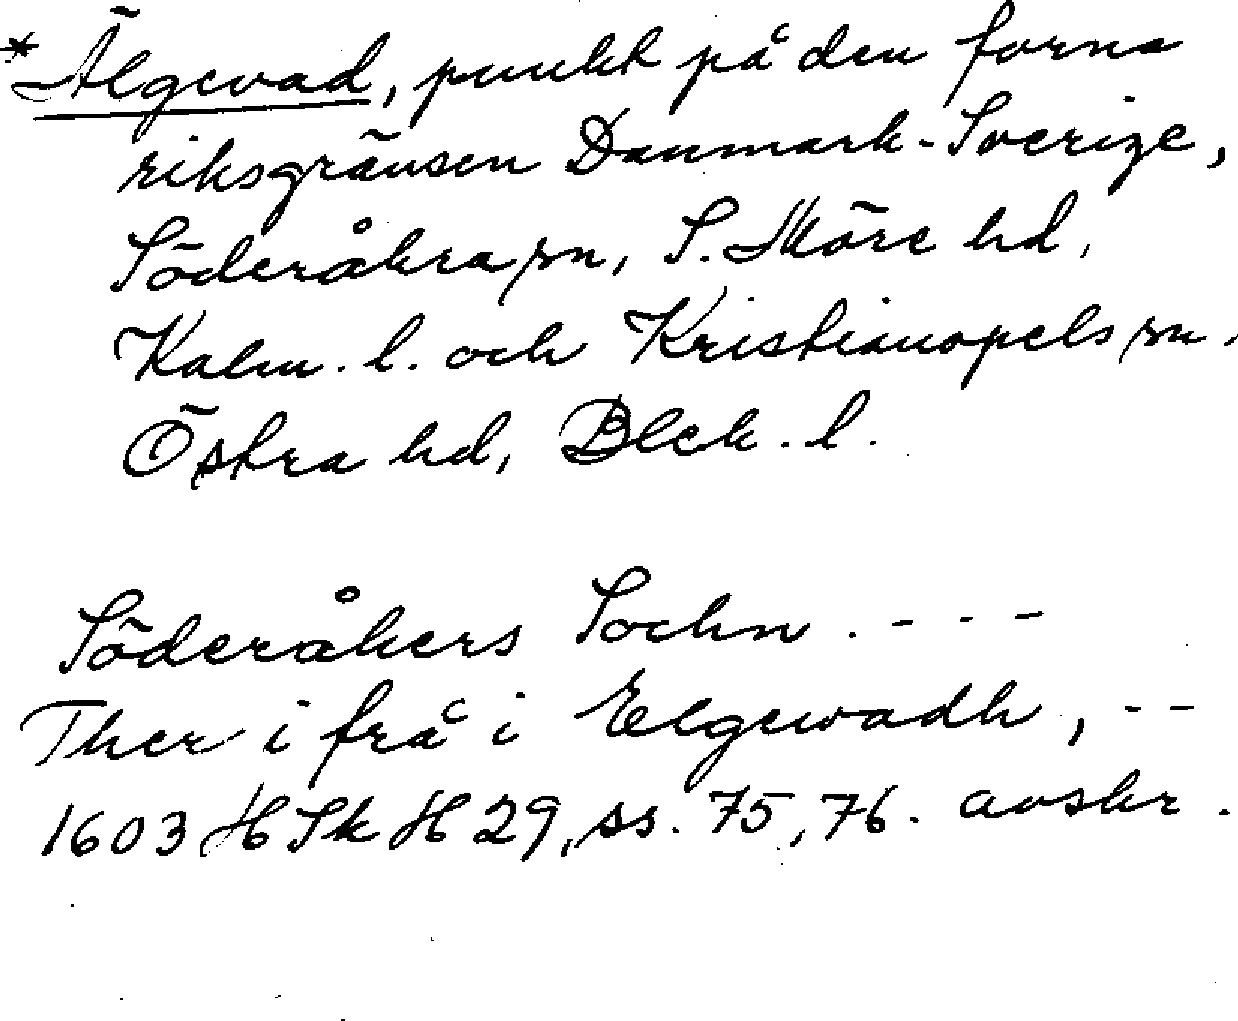 *Älgevad, punkt på den forna
riksgränsen Danmark-Sverige,
Söderåkra sn, S. Möre hd,
Kalm. l. och Kristianopels sn,
Östra hd, Blek. l.
Söderåkers Sochn . - - -
Ther i frå i Elgewadh, - -
1603 HSkH 29, ss. 75, 76. avskr.